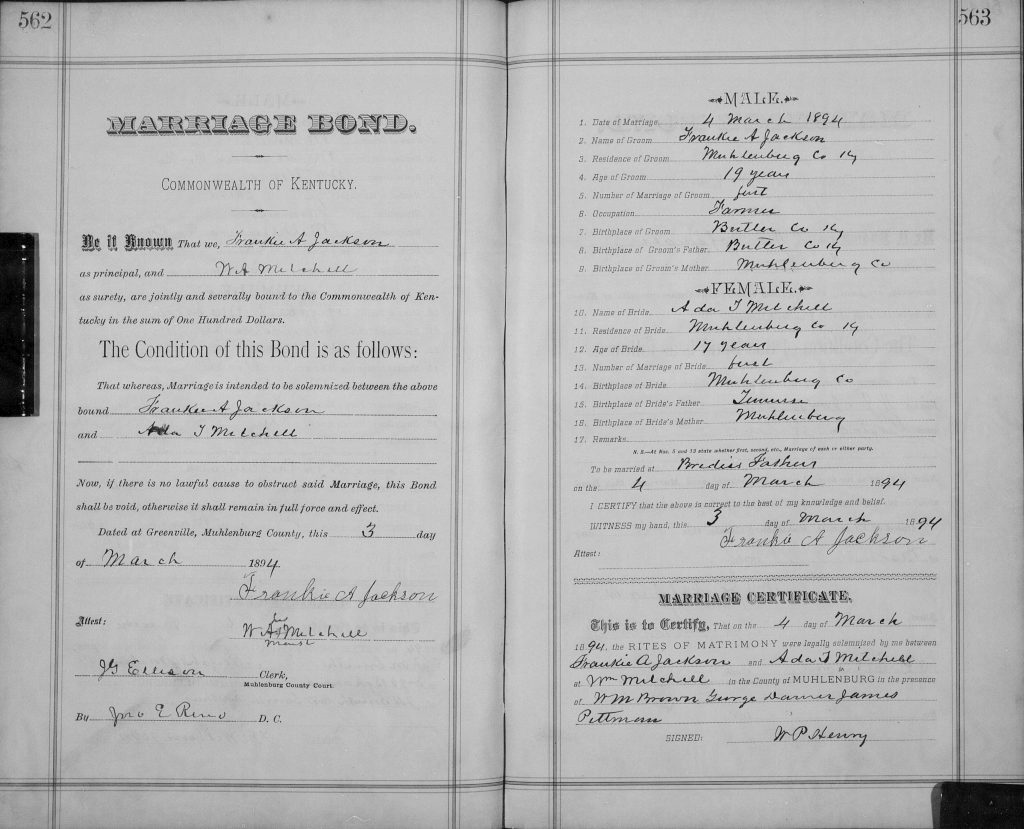 562
MARRIAGE BOND.
COMMONWEALTH OF KENTUCKY.
Be it Known That we, Frankie A Jackson
as principal, and W A Mitchell
as surety, are jointly and severally bound to the Commonwealth of Ken-
tucky in the sum of One Hundred Dollars.
The Condition of this Bond is as follows:
That whereas, Marriage is intended to be solemnized between the above
bound Frankie A Jackson
and Ada T Mitchell
Now, if there is no lawful cause to obstruct said Marriage, this Bond
shall be void, otherwise it shall remain in full force and effect.
Dated at Greenville, Muhlenburg County, this 3 day
of March 1894
Frankie A Jackson
Attest:
his
W A x Mitchell
mark
J G Ellison Clerk,
Muhlenburg County Court.
By Jno E Reno D. C.
563
MALE.
1. Date of Marriage, 4 March 1894
2. Name of Groom Frankie A Jackson
3. Residence of Groom Muhlenburg Co Ky
4. Age of Groom 19 years
5. Number of Marriage of Groom first
6. Occupation Farmer
7. Birthplace of Groom Butler Co Ky
8. Birthplace of Groom's Father Butler Co Ky
9. Birthplace of Groom's Mother Muhlenburg Co
FEMALE.
10. Name of Bride Ada T Mitchell
11. Residence of Bride Muhlenburg Co Ky
12. Age of Bride 17 years
13. Number of Marriage of Bride first
14. Birthplace of Bride Muhlenburg Co
15. Birthplace of Bride's Father
16. Birthplace of Bride's Mother Muhlenburg
17. Remarks
N. B.—At Nos. 5 and 13 state whether first, second, etc., Marriage of each or either party.
To be married at Brides Fathers
on the 4 day of March 1894
I CERTIFY that the above is correct to the best of my knowledge and belief.
WITNESS my hand, this 3 day of March 1894
Frankie A Jackson
Attest:
MARRIAGE CERTIFICATE.
This is to Certify, That on the 4 day of March
1894, the RITES OF MATRIMONY were legally solemnized by me between
Frankie A Jackson and Ada T Mitchell
at Wm Mitchell in the County of MUHLENBURG in the presence
of W M Brown Gurge Darner James
Pittman
SIGNED: W P Henry